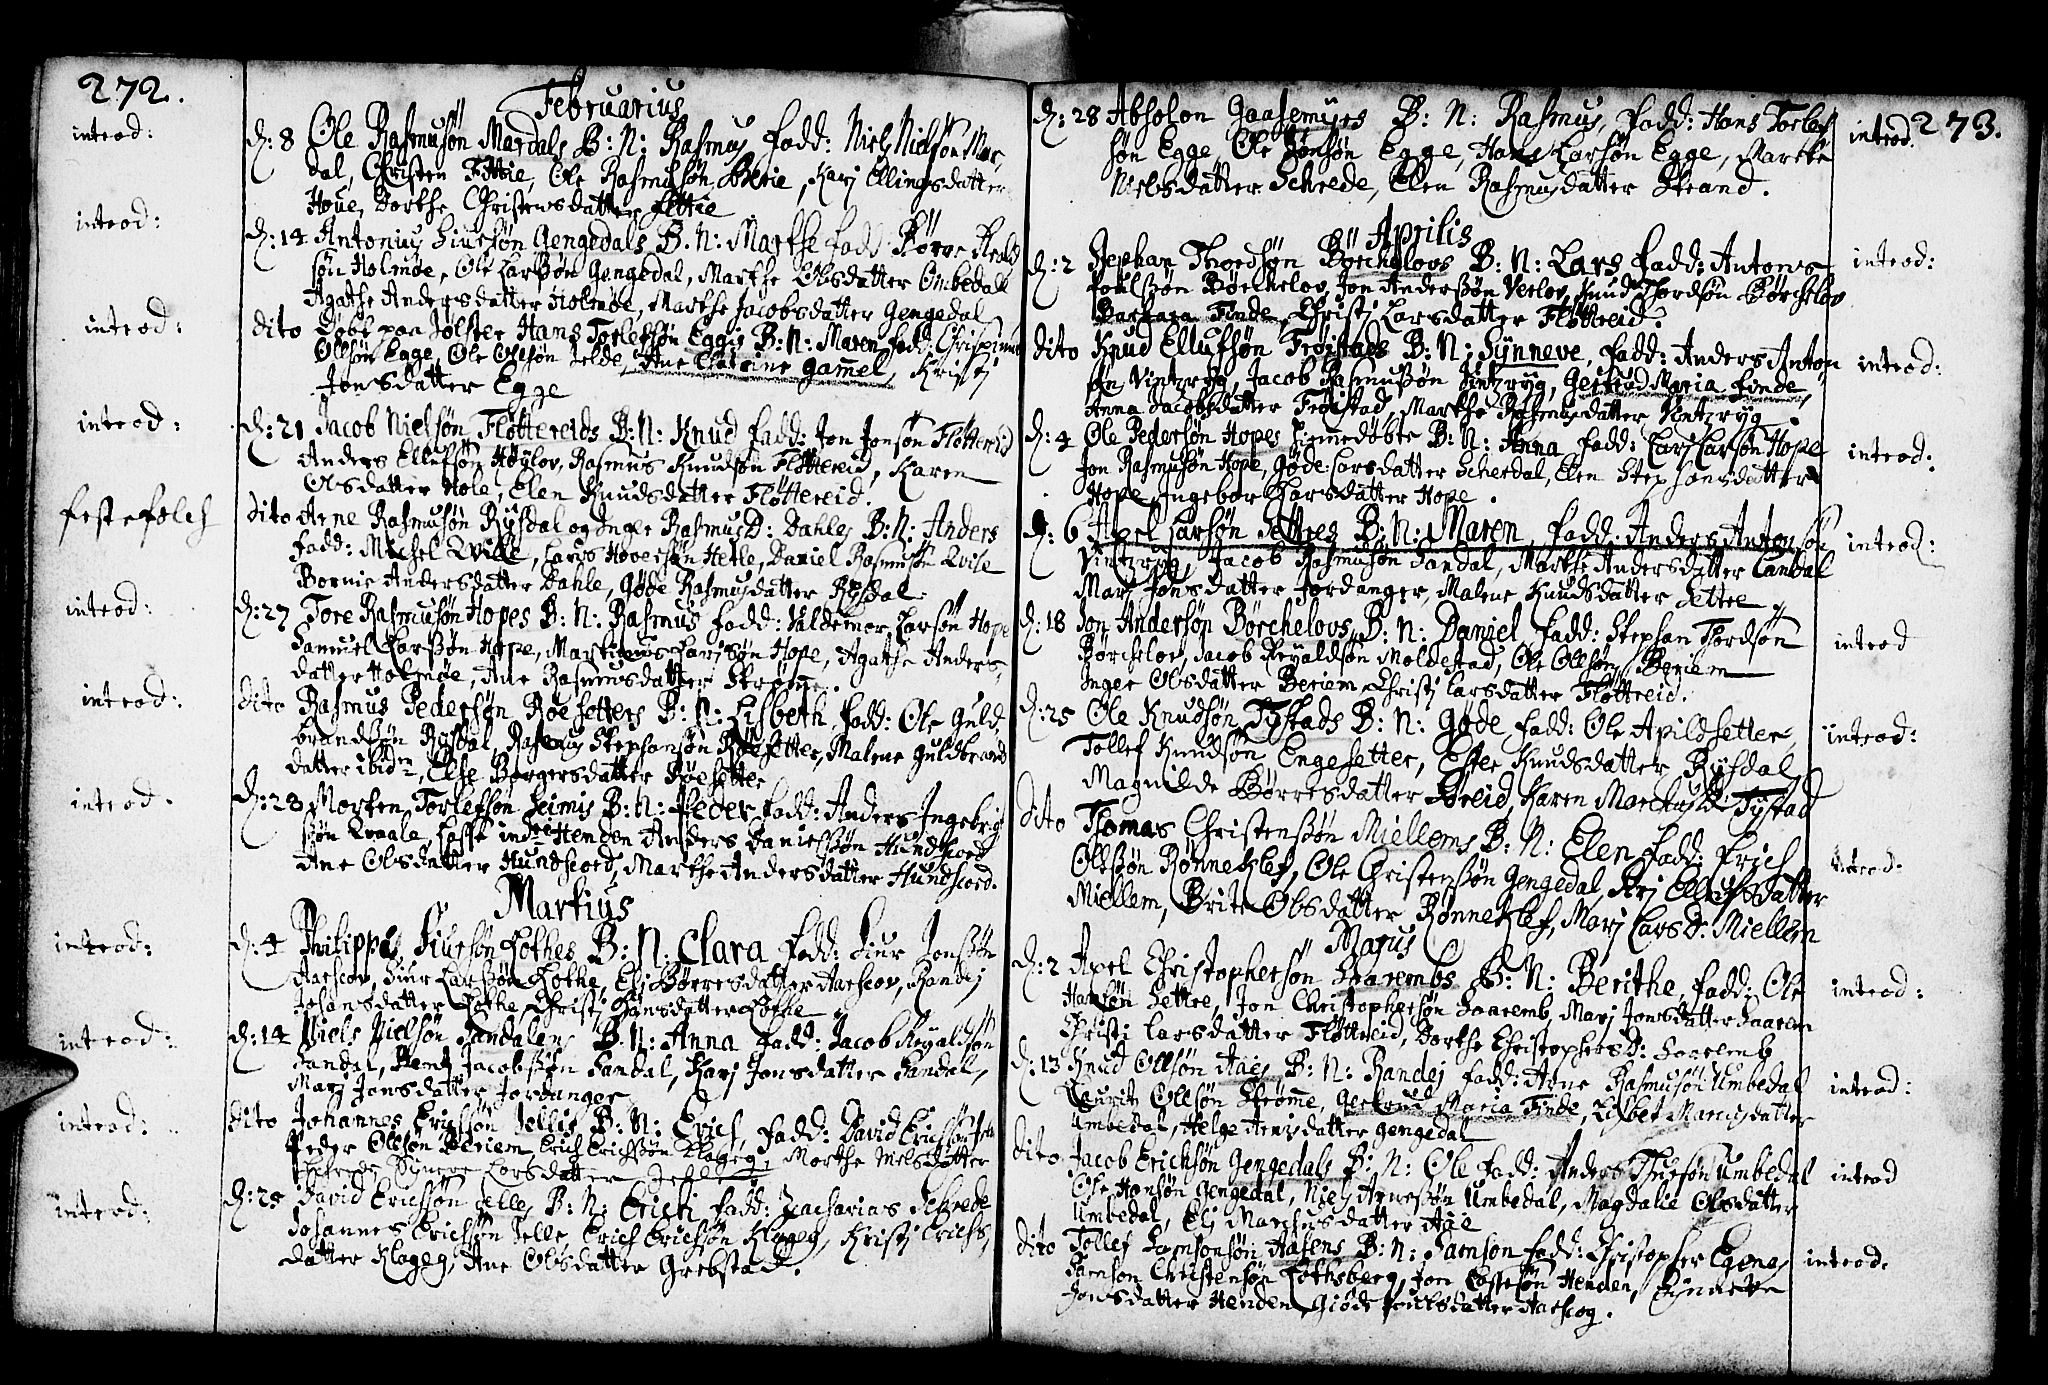 272.
Februarius
introd:
d: 8 Ole Rasmusøn Mardals B: N: Rasmus fadd: Niels Nielsøn Mar,
dal, Christen Fittie, Ole Rasmusøn Berie, Karj Ellingsdatter
Houe, Dorthe Christensdatter Fittie
introd:
d: 14 Antonius Siursøn Gengedals B: N: Marthe fadd: Børre
søn Holmøe, Ole Larssøn Gengedal, Marthe Olsdatter Ombedal
Agathe Andersdatter Holmøe, Marthe Jacobsdatter Gengedal
introd:
dito Døbt paa Jølster Hans Torlefsøn Eggis B: N: Maren fadd: Chrispinus
Ollsøn Egge, Ole Olssøn Ielde, Ane Catrine gamel, Kristj
Jonsdatter Egge
introd:
d: 21 Jacob Nielsøn Fløttereids B: N: Knud fadd: Jon Jonsøn Fløttereid
Anders Ellefsøn Høÿlov, Rasmus Knudsøn Fløttereid, Karen
Olsdatter Hole, Elen Knudsdatter Fløttereid.
festefolch
dito Arne Rasmusøn Rÿsdal og Inger RasmusD: Dahles B: N: Anders
fadd: Michel Qville, Lars Hoversøn Hetle, Daniel Rasmussøn Qvile
Bornie Andersdatter Dahle, Gøde Rasmusdatter Rÿsdal
introd:
d: 27 Tore Rasmusøn Hopes B: N: Rasmus fadd: Valdemar Larsøn Hope
Samuel Larssøn Hope, Martinus Larssøn Hope, Agathe Anders,
datter Holmøe, Ane Rasmusdatter Strømme.
introd:
dito Rasmus Pedersøn Røesetters B: N: Lisbeth, fadd: Ole Guld,
brandssøn Rÿsdal, Rasmus Stephansøn Røesetter, Malene Guldbrands
datter ibidem, Else Børgersdatter Røesetter
introd.
d: 28 Morten Torlefsøn Seimis B: N: Peder fadd: Anders Ingebrigt
søn Qvaale, Lasse indre Henden Anders Danielssøn Hundskord
Ane Olsdatter Hundskord, Marthe Andersdatter Hundskord.
Martius
introd:
d: 4 Philippus Siursøn Lothes B: N: Clara fadd: Siur Jonssøn
Aaeskov, Siur Larssøn Lothe, Eli Børresdatter Aaeskov, Randej
Johansdatter Lothe, Christj Hansdatter Lothe
introd:
d: 14 Niels Nielsøn Sandalens B: N: Anna fadd: Jacob Reÿaldsøn
Sandal, Bent Jacobssøn Sandal, Karj Jonsdatter Sandal,
Marj Jonsdatter Jordanger
introd:
dito Johannes Erichsøn Jellis B: N: Erich, fadd: David Erichssøn
Peder Olssøn Beriem, Erich Erichssøn Klageg, Marthe Nielsdatter
Schrede, Sÿneve Larsdatter Jelle
introd:
d: 25 David Erichsøn Jelle, B: N: Erich, fadd: Zacharias Schrede
Johannes Erichsøn Jelle, Erich Erichsøn Klageg, Kristj Erichs,
datter Klageg, Ane Olsdatter Grebstad.
273.
introd.
d: 28 Absolon Gaasemÿrs B: N: Rasmus, fadd: Hans Torlef
søn Egge, Ole Jonsøn Egge, Hans Larsøn Egge, Marthe
Nielsdatter Schrede, Elen Rasmusdatter Strand.
Aprilis
introd:
d: 2 Stephan Thordsøn Børchelovs B: N: Lars fadd: Antonis
Poulssøn Børchelov, Jon Anderssøn Vetlov, Knud Thordsøn Børchelov
Barbara Finde, Christj Larsdatter Fløttreid.
introd:
dito Knud Ellufsøn Frøistads B: N: Sÿnneve, fadd: Anders Anton
søn Vintzrÿg, Jacob Rasmussøn Vintzrÿg, Gertrud Maria Finde,
Anna Jacobsdatter Frøistad, Marthe Rasmusdatter Vintzrÿg
introd:
d: 4 Ole Pedersøn Hopes hiemmedøbte B: N: Anna fadd: Lars Larsøn Hope
Jon Rasmusøn Hope, Gøde Larsdatter Scherdal, Elen Stephansdatter
Hope, Ingebor Larsdatter Hope.
introd:
d: 6 Axel Larsøn Settres B: N: Maren, fadd: Anders Antonsøn
Vintzrÿg, Jacob Rasmusøn Sandal, Marthe Andersdatter Sandal
Marj Jonsdatter Jordanger, Malene Knudsdatter Settre.
introd
d: 18 Jon Andersøn Børchelovs B: N: Daniel, fadd: Stephan Thordsøn
Børchelov, Jacob Reÿaldsøn Moldestad, Ole Olssøn Beriem
Inger Olsdatter Beriem, Christj Larsdatter Fløttreid.
introd:
d: 25 Ole Knudsøn Tÿstads B: N: Gøde, fadd: Ole Apildsetter,
Tollef Knudsøn Engesetter, Ester Knudsdatter Rÿsdal
Magnilde Børresdatter Søreid, Karen MarchusD: Tÿstad
introd.
dito Thomas Christenssøn Miellems B: N: Elen, fadd: Erich
Olssøn Rønneklef, Ole Christenssøn Gengedal, Karj Ellufsdatter
Miellem, Brite Olsdatter Rønneklef, Marj LarsD: Miellem
Majus
introd:
d: 2 Axel Christophersøn Saarembs B: N: Berithe, fadd: Ole
Hansøn Settre, Jon Christophersøn Saaremb, Marj Jonsdatter Saarem
Christi Larsdatter Fløttreid, Dorthe ChristophersD: Saaremb
introd:
d: 13 Knud Ollsøn Aaes B: N: Randej fadd: Arne Rasmusøn Umbedal
Laurits Ollsøn Strømme, Gertrud Maria Finde, Lisbet Marcusdatter
Umbedal, Helge Arnisdatter gengedal
introd
dito Jacob Erichsøn Gengedals B: N: Ole fadd: Anders Thuesøn Umbedal
Ole Hansøn Gengedal, Niels Arnessøn Umbedal, Magdalie Olsdatter
Umbedal, Elj Marchusdatter Aae
introd.
dito Tollef Samsonsøn Aasens B: N: Samson fadd: Christopher Egene,
Samson Christensøn Lothsberg, Jon Lassesøn Henden, Sÿnneve
Jonsdatter Henden, Giøde Poulsdatter Aaeskog.